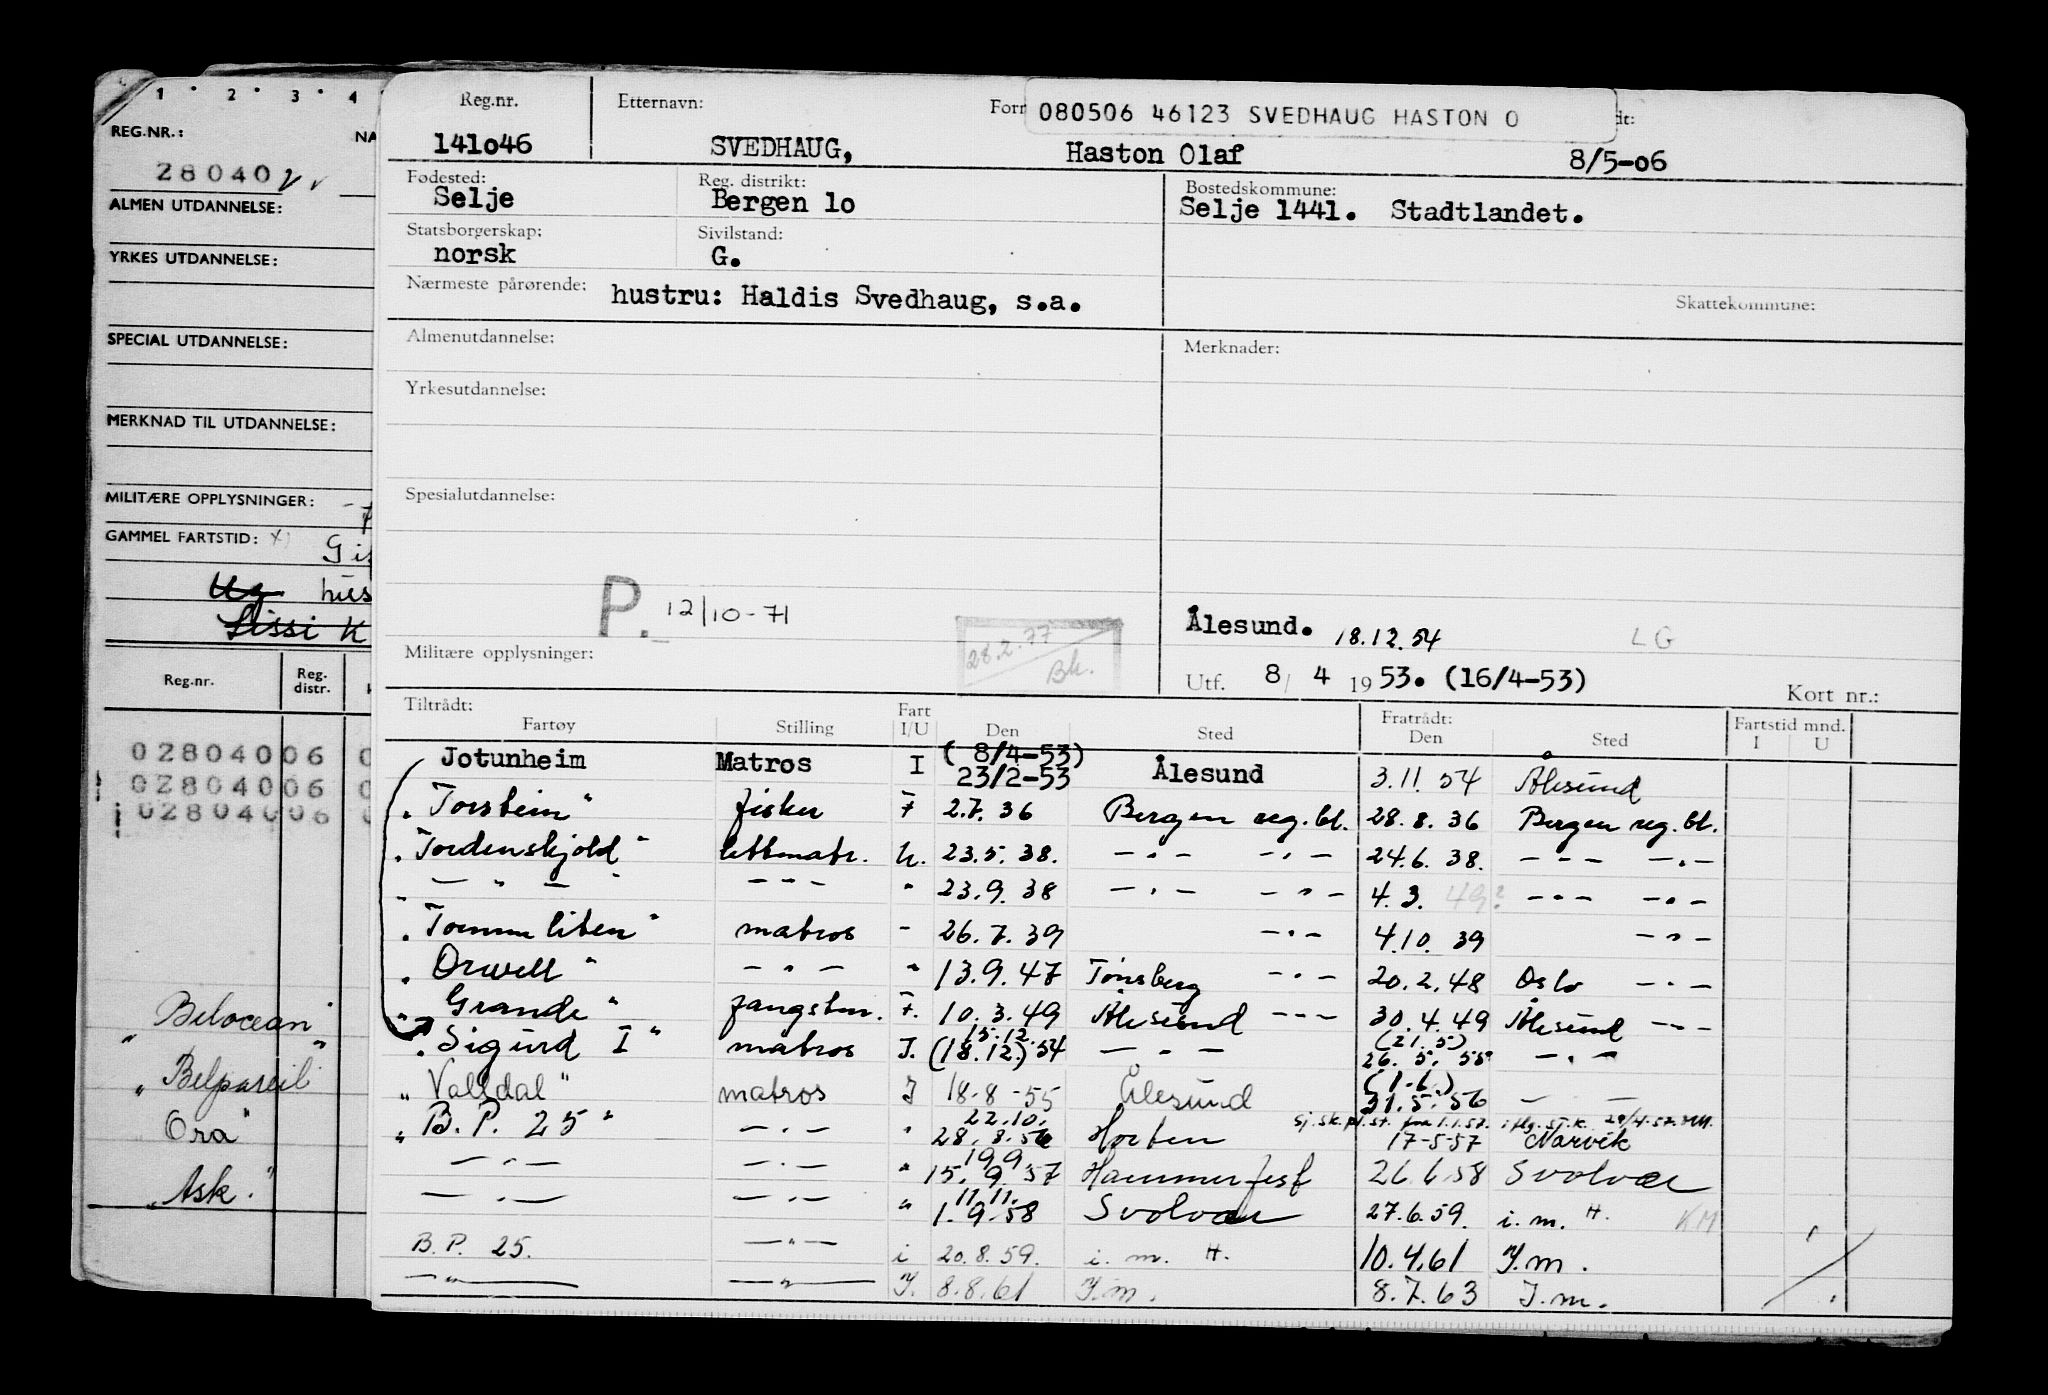 1 · 2 · 3 · 4
REG.NR.: NA
28040
ALMEN UTDANNELSE:
YRKES UTDANNELSE:
SPECIAL UTDANNELSE:
MERKNAD TIL UTDANNELSE:
MILITÆRE OPPLYSNINGER:
GAMMEL FARTSTID: x)
Reg.nr. Reg. distr.
02804006 0
02804006 0
02804006 0
"Belocean"
"Belpareil"
"Ora"
"Ask."
Reg.nr. Etternavn: Forn 080506 46123 SVEDHAUG HASTON O dt:
141o46 SVEDHAUG, Haston Olaf 8/5-o6
Fødested: Reg. distrikt: Bostedskommune:
Selje Bergen 1o Selje 1441. Stadtlandet.
Statsborgerskap: Sivilstand:
norsk G.
Nærmeste pårørende: hustru: Haldis Svedhaug, s.a. Skattekommune:
Almenutdannelse: Merknader:
Yrkesutdannelse:
Spesialutdannelse:
P. 12/10-71
Ålesund. 18.12.54 LG
28.2.77 Bh.
Militære opplysninger:
Utf. 8/ 4 1953. (16/4-53) Kort nr.:
Tiltrådt: Fratrådt: Fartstid mnd.
Fartøy Stilling Fart I/U Den Sted Den Sted I U
Jotunheim Matros I (8/4-53) 23/2-53 Ålesund 3.11.54 Ålesund
"Torstein" fisker F 2.7.36 Bergen reg.bl. 28.8.36 Bergen reg.bl.
"Tordenskjold" lettmatr. U. 23.5.38. — " — — " — 24.6.38. — " — — " —
— " — — " — " 23.9.38 — " — — " — 4.3. 49? — " — — " —
"Tommeliten" matros " 26.7.39 — " — 4.10.39 — " —
"Orwell" — " — " 13.9.47 Tønsberg — " — 20.2.48 Oslo — " —
"Grande" fangstm. F. 10.3.49 Ålesund — " — 30.4.49 Ålesund — " —
"Sigurd I" matros I. 15.12. (18.12.) 54 — " — (21.5) 26.5.55 — " —
"Valldal" matros I 18.8-55 Ålesund (1.6.) 31.5.56 — " —
"B.P. 25" — " — " 22.10. 28.8.56 Horten 17-5-57 Narvik
— " — — " — " 19.9. 15.9.57 Hammerfest 26.6.58 Svolvær
— " — — " — " 11.11. 1.9.58 Svolvær 27.6.59. i.m. H. KM
B.P. 25. — " — i 20.8.59. i.m. H. 10.4.61 I.m.
— " — — " — I. 8.8.61 I.m. 8.7.63 I.m.